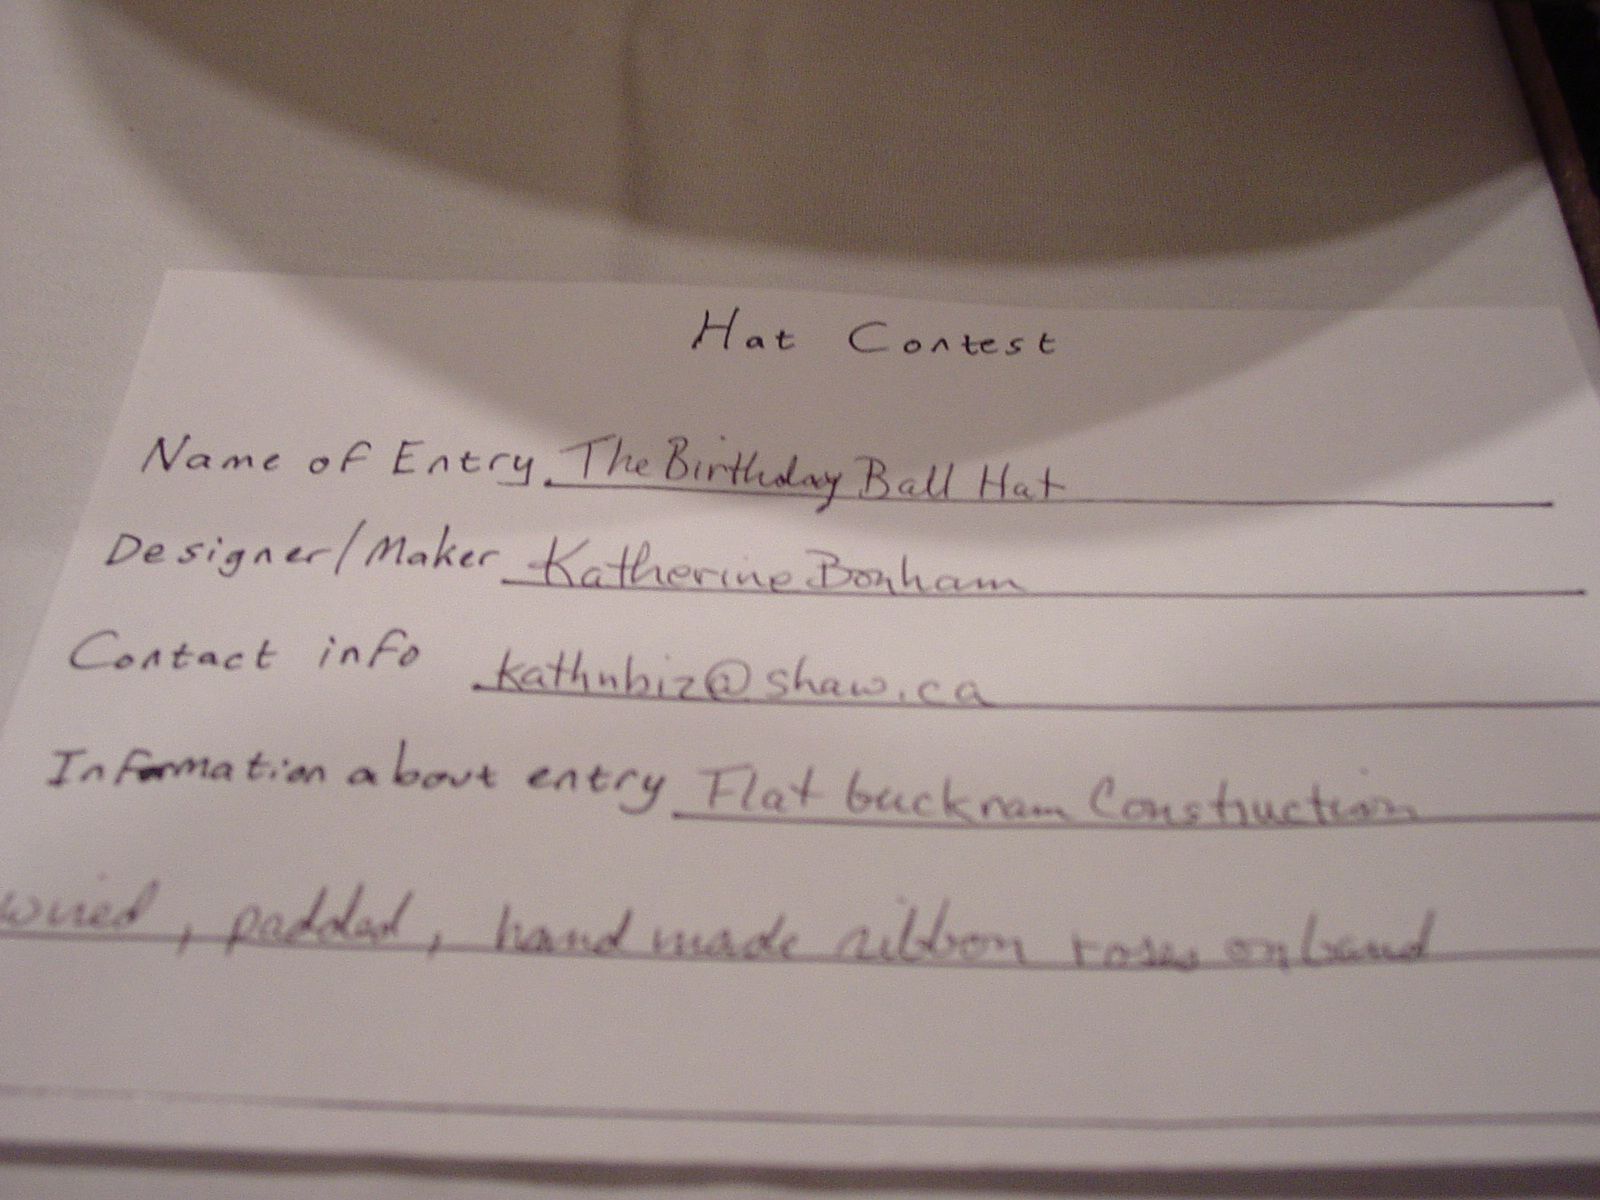 Hat Contest
Name of Entry The Birthday Ball Hat
Designer/Maker Katherine Bonham
Contact info kathnbiz@shaw.ca
Information about entry Flat buckram Construction
wired, padded, hand made ribbon roses on band